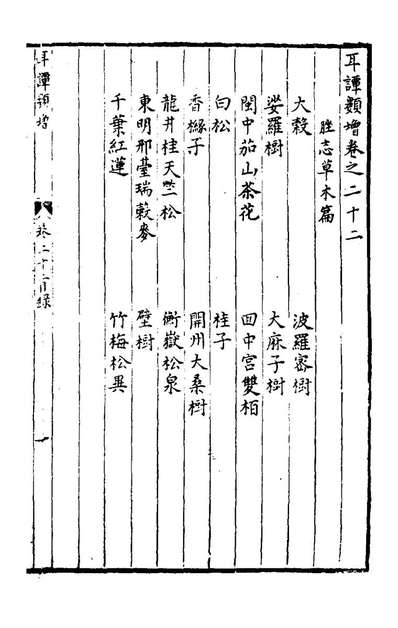 耳譚類增卷之二十二
脞志草木篇
大穀 波羅密樹
娑羅樹 大麻子樹
閩中茄山茶花 回中宮雙栢
白松 桂子
香櫞子 開州大桑樹
龍井桂天竺松 衡嶽松泉
東明邢臺瑞穀麥 壁樹
千葉紅蓮 竹梅松異
耳譚類增 卷二十二目錄 一